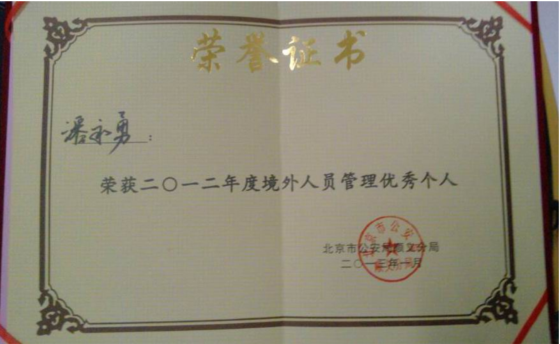 荣誉证书
潘永勇：
荣获二〇一二年度境外人员管理优秀个人
北京市公安局顺义分局
二〇一三年一月